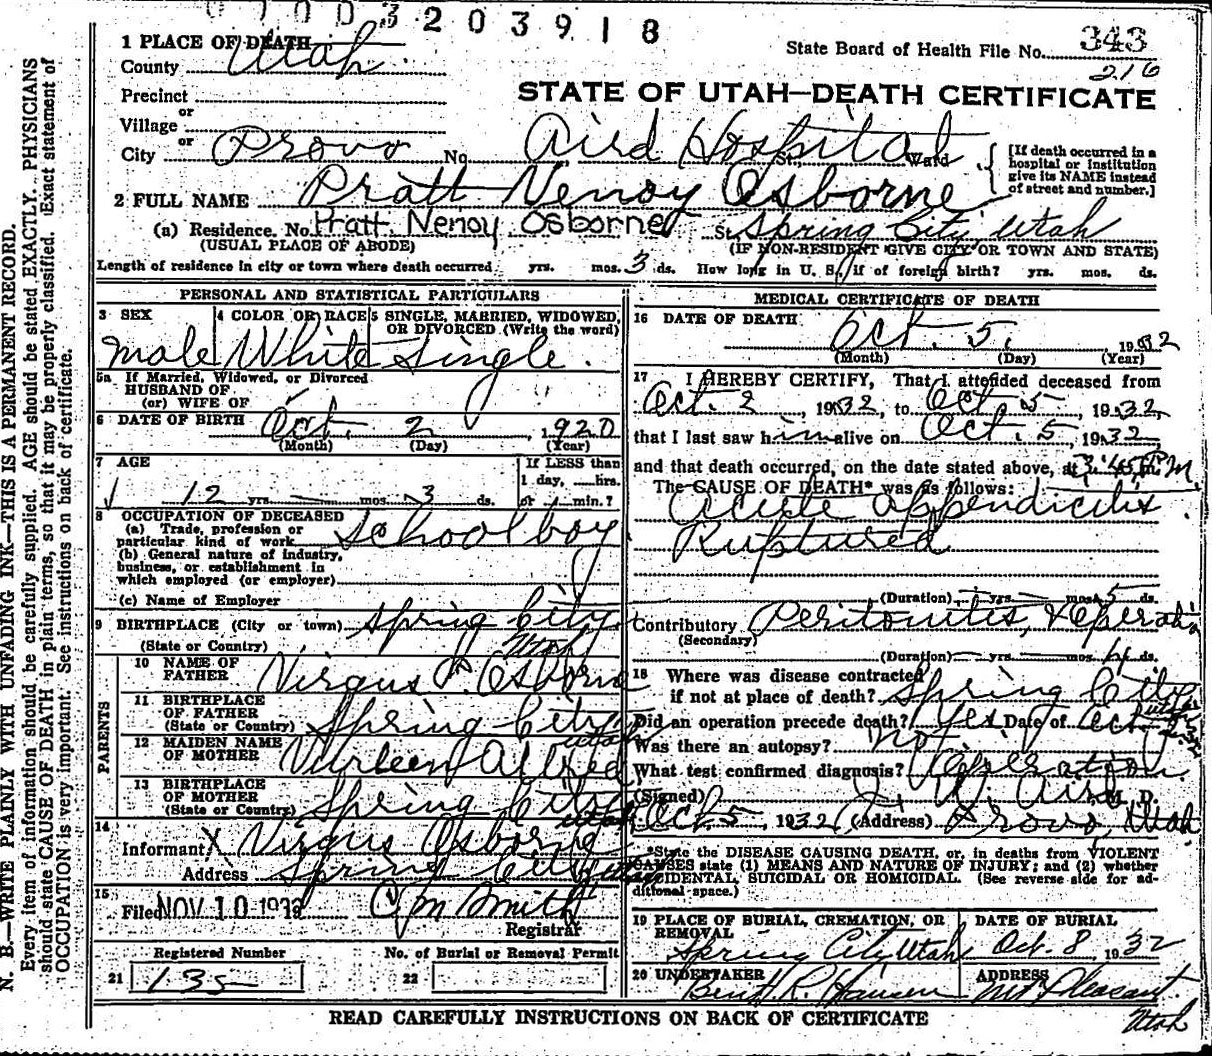 0 1 0 0 3 2 0 3 9 1 8
1 PLACE OF DEATH
County Utah
State Board of Health File No. 343
216
STATE OF UTAH—DEATH CERTIFICATE
Precinct
or
Village
or
City Provo No. Aird Hospital St., Ward
[If death occurred in a hospital or institution give its NAME instead of street and number.]
2 FULL NAME Pratt Nenoy Osborne
(a) Residence. No. Pratt Nenoy Osborne St. Spring City, Utah
(USUAL PLACE OF ABODE) (IF NON-RESIDENT GIVE CITY OR TOWN AND STATE)
Length of residence in city or town where death occurred yrs. mos. 3 ds. How long in U. S., if of foreign birth? yrs. mos. ds.
PERSONAL AND STATISTICAL PARTICULARS
3 SEX 4 COLOR OR RACE 5 SINGLE, MARRIED, WIDOWED, OR DIVORCED (Write the word)
male White Single
5a If Married, Widowed, or Divorced
HUSBAND OF
(or) WIFE OF
6 DATE OF BIRTH Oct. 2, 1920
(Month) (Day) (Year)
7 AGE If LESS than
1 day, hrs.
12 yrs. — mos. 3 ds. or min.?
8 OCCUPATION OF DECEASED
(a) Trade, profession or
particular kind of work School boy
(b) General nature of industry,
business, or establishment in
which employed (or employer)
(c) Name of Employer
9 BIRTHPLACE (City or town) Spring City
(State or Country) Utah
PARENTS
10 NAME OF
FATHER Virgus P. Osborne
11 BIRTHPLACE
OF FATHER
(State or Country) Spring City Utah
12 MAIDEN NAME
OF MOTHER Allred
13 BIRTHPLACE
OF MOTHER
(State or Country) Spring City Utah
14
Informant X Virgus Osborne
Address Spring City Utah
15
Filed NOV 10 1932 Smith
Registrar
Registered Number No. of Burial or Removal Permit
21 135 22
MEDICAL CERTIFICATE OF DEATH
16 DATE OF DEATH
Oct. 5, 1932
(Month) (Day) (Year)
17 I HEREBY CERTIFY, That I attended deceased from
Oct. 2, 1932, to Oct. 5, 1932,
that I last saw him alive on Oct. 5, 1932,
and that death occurred, on the date stated above, at 3:45 P.M.
The CAUSE OF DEATH* was as follows:
Acute appendicitis
Ruptured
(Duration) — yrs. — mos. 5 ds.
Contributory Peritonitis, & Operation
(Secondary)
(Duration) — yrs. — mos. 4 ds.
18 Where was disease contracted
if not at place of death? Spring City Utah
Did an operation precede death? Yes Date of Oct.
Was there an autopsy? no
What test confirmed diagnosis? Operation
(Signed) Aird, M. D.
Oct. 5, 1932 (Address) Provo, Utah
*State the DISEASE CAUSING DEATH, or, in deaths from VIOLENT
CAUSES state (1) MEANS AND NATURE OF INJURY; and (2) whether
ACCIDENTAL, SUICIDAL OR HOMICIDAL. (See reverse side for ad-
ditional space.)
19 PLACE OF BURIAL, CREMATION, OR
REMOVAL DATE OF BURIAL
Spring City Utah Oct. 8, 1932
20 UNDERTAKER ADDRESS
R. Hansen Mt Pleasant
Utah
READ CAREFULLY INSTRUCTIONS ON BACK OF CERTIFICATE
N. B.—WRITE PLAINLY WITH UNFADING INK—THIS IS A PERMANENT RECORD.
Every item of information should be carefully supplied. AGE should be stated EXACTLY. PHYSICIANS
should state CAUSE OF DEATH in plain terms, so that it may be properly classified. Exact statement of
OCCUPATION is very important. See instructions on back of certificate.